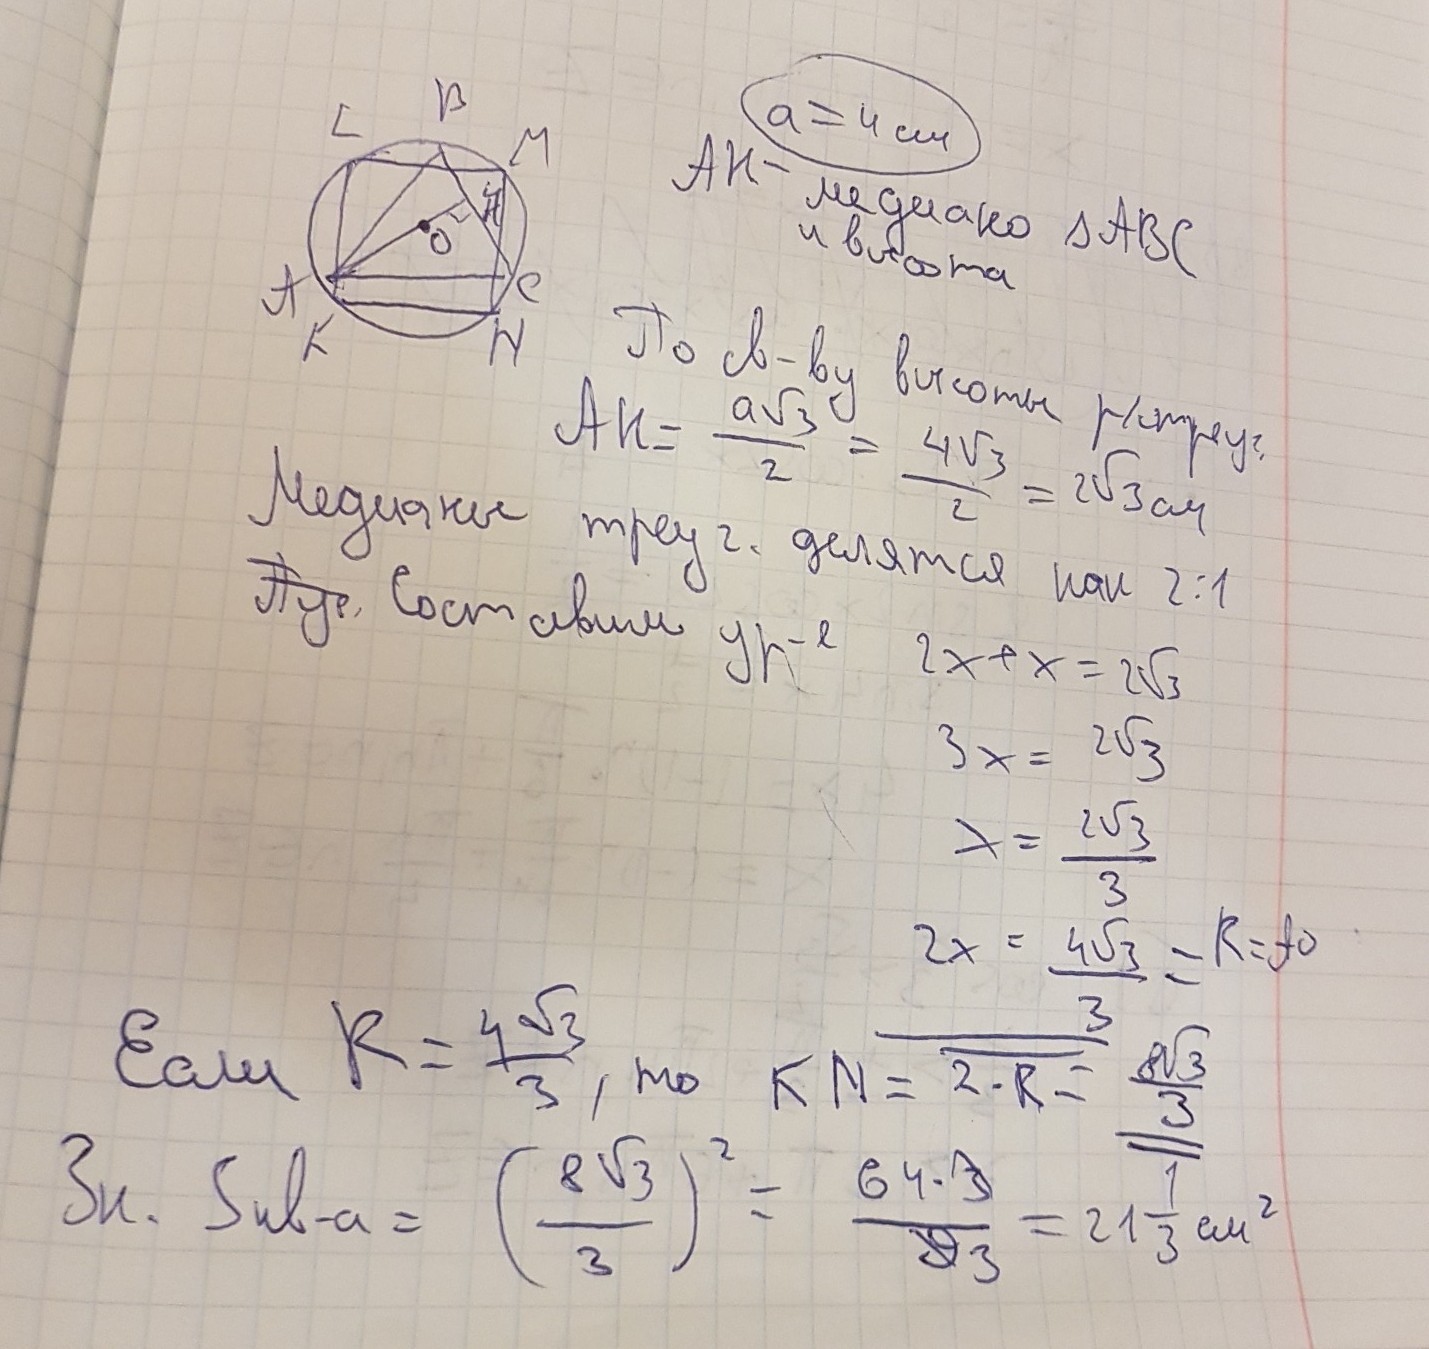 L B M
a = 4 см
H
O
A C
K N
AH - медиана △ABC
и высота
По св-ву высоты р/треуг.
AH = a√3/2 = 4√3/2 = 2√3 см
Медианы треуг. делятся как 2:1
Составим ур-е 2x + x = 2√3
3x = 2√3
x = 2√3/3
2x = 4√3/3 = R = AO
Если R = 4√3/3, то KN = 2·R = 8√3/3
Зн. Sкв-а = (8√3/3)² = 64·3/93 = 21 1/3 см²